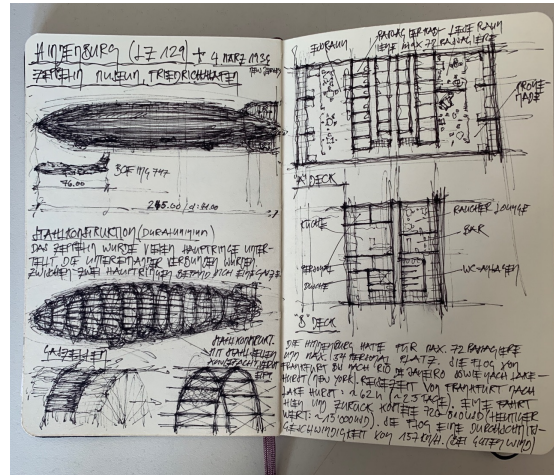 HINDENBURG (LZ 129) + 4 MÄRZ 1936
ZEPPELIN MUSEUM, FRIEDRICHSHAFEN
BOEING 747
76.00
245.00 / d: 41.00
STAHLKONSTRUKTION (DURALUMINIUM)
DAS ZEPPELIN WURDE HAUPTRINGE UNTER-
TEILT, DIE UNTEREINANDER VERBUNDEN WURDEN.
ZWISCHEN ZWEI HAUPTRINGEN BEFAND SICH EINE GASZE
GASZELLEN
STAHLKONSTRUKT.
MIT STAHLSEILEN
LESE RAUM
MAX 72 PASSAGIERE
PROME-
NADE
"A" DECK
KÜCHE
RAUCHER LOUNGE
BAR
PERSONAL
DUSCHE
WC-ANLAGEN
"B" DECK
DIE HINDENBURG HATTE FÜR MAX. 72 PASSAGIERE
UND MAX. 54 PERSONAL PLATZ. SIE FLOG VON
FRANKFURT BIS NACH RIO DE JANEIRO SOWIE NACH LAKE-
HURST (NEW YORK). REISEZEIT VON FRANKFURT NACH
LAKE HURST: ~ 62 H (~ 2.5 TAGE), EINE FAHRT
HIN UND ZURÜCK KOSTETE 720 USD (HEUTIGER
WERT: ~ 13'000 USD). SIE FLOG EINE DURCHSCHNITTS-
GESCHWINDIGKEIT VON 157 KM/H. (BEI GUTEN WIND)